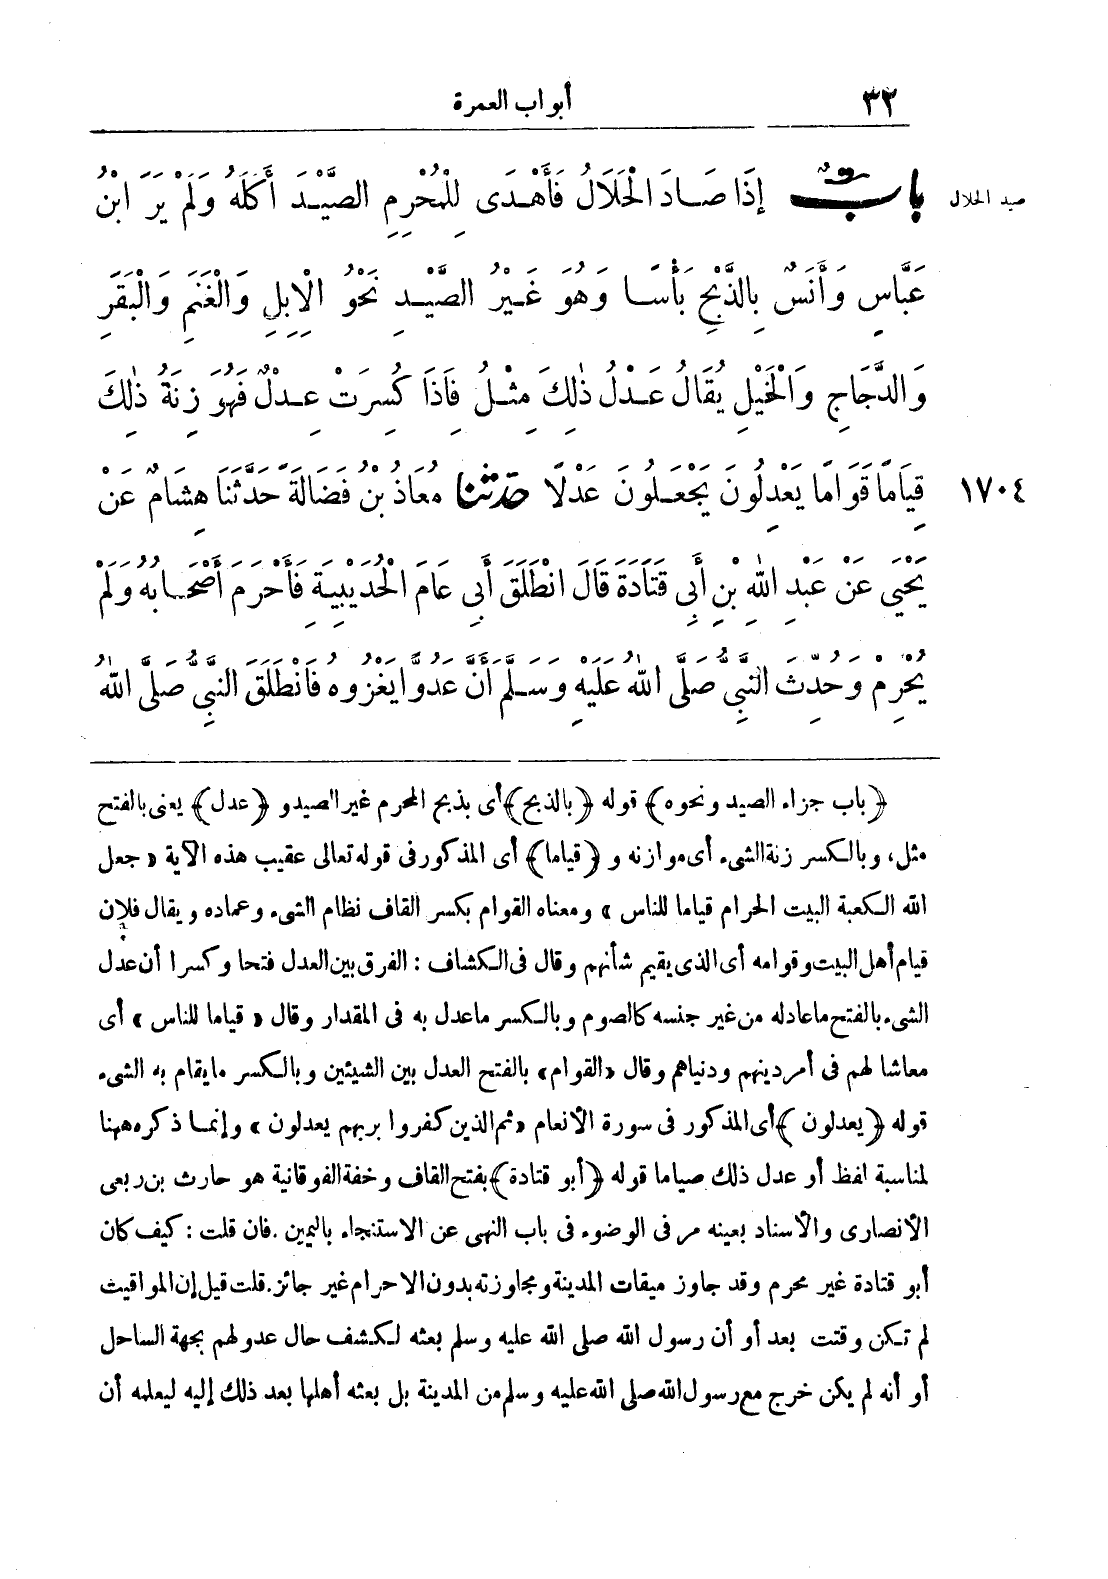 ٣٢
أبواب العمرة
صيد الحلال
بابٌ إِذَا صَادَ الْحَلَالُ فَأَهْدَى لِلْمُحْرِمِ الصَّيْدَ أَكَلَهُ وَلَمْ يَرَ ابْنُ
عَبَّاسٍ وَأَنَسٌ بِالذَّبْحِ بَأْسًا وَهُوَ غَيْرُ الصَّيْدِ نَحْوُ الْإِبِلِ وَالْغَنَمِ وَالْبَقَرِ
وَالدَّجَاجِ وَالْخَيْلِ يُقَالُ عَدْلُ ذٰلِكَ مِثْلُ فَإِذَا كُسِرَتْ عِدْلٌ فَهُوَ زِنَةُ ذٰلِكَ
١٧٠٤
قِيَامًا قَوَامًا يَعْدِلُونَ يَجْعَلُونَ عَدْلًا حدثنا مُعَاذُ بْنُ فَضَالَةَ حَدَّثَنَا هِشَامٌ عَنْ
يَحْيَى عَنْ عَبْدِ اللهِ بْنِ أَبِي قَتَادَةَ قَالَ انْطَلَقَ أَبِي عَامَ الْحُدَيْبِيَةِ فَأَحْرَمَ أَصْحَابُهُ وَلَمْ
يُحْرِمْ وَحُدِّثَ النَّبِيُّ صَلَّى اللهُ عَلَيْهِ وَسَلَّمَ أَنَّ عَدُوًّا يَغْزُوهُ فَانْطَلَقَ النَّبِيُّ صَلَّى اللهُ
﴿باب جزاء الصيد ونحوه﴾ قوله ﴿بالذبح﴾ أى بذبح المحرم غير الصيد و ﴿عدل﴾ يعنى بالفتح
مثل، وبالكسر زنة الشىء أى موازنه و ﴿قياما﴾ أى المذكور فى قوله تعالى عقيب هذه الآية «جعل
الله الكعبة البيت الحرام قياما للناس» ومعناه القوام بكسر القاف نظام الشىء وعماده ويقال فلان
قيام أهل البيت وقوامه أى الذى يقيم شأنهم وقال فى الكشاف : الفرق بين العدل فتحا وكسرا أن عدل
الشىء بالفتح ماعادله من غير جنسه كالصوم وبالكسر ماعدل به فى المقدار وقال «قياما للناس» أى
معاشا لهم فى أمر دينهم ودنياهم وقال «القوام» بالفتح العدل بين الشيئين وبالكسر مايقام به الشىء
قوله ﴿يعدلون﴾ أى المذكور فى سورة الأنعام «ثم الذين كفروا بربهم يعدلون» وإنما ذكره ههنا
لمناسبة لفظ أو عدل ذلك صياما قوله ﴿أبو قتادة﴾ بفتح القاف وخفة الفوقانية هو حارث بن ربعى
الأنصارى والأسناد بعينه مر فى الوضوء فى باب النهى عن الاستنجاء باليمين . فان قلت : كيف كان
أبو قتادة غير محرم وقد جاوز ميقات المدينة ومجاوزته بدون الاحرام غير جائز . قلت قيل إن المواقيت
لم تكن وقتت بعد أو أن رسول الله صلى الله عليه وسلم بعثه لكشف حال عدو لهم بجهة الساحل
أو أنه لم يكن خرج مع رسول الله صلى الله عليه وسلم من المدينة بل بعثه أهلها بعد ذلك إليه ليعلمه أن